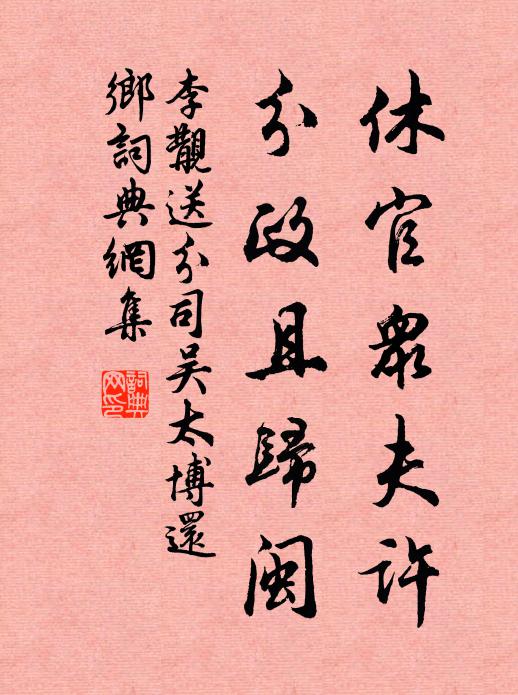 休官眾夫許
分政且歸閩
李覯送分司吴太博還
鄉詞典網集
詞典网印